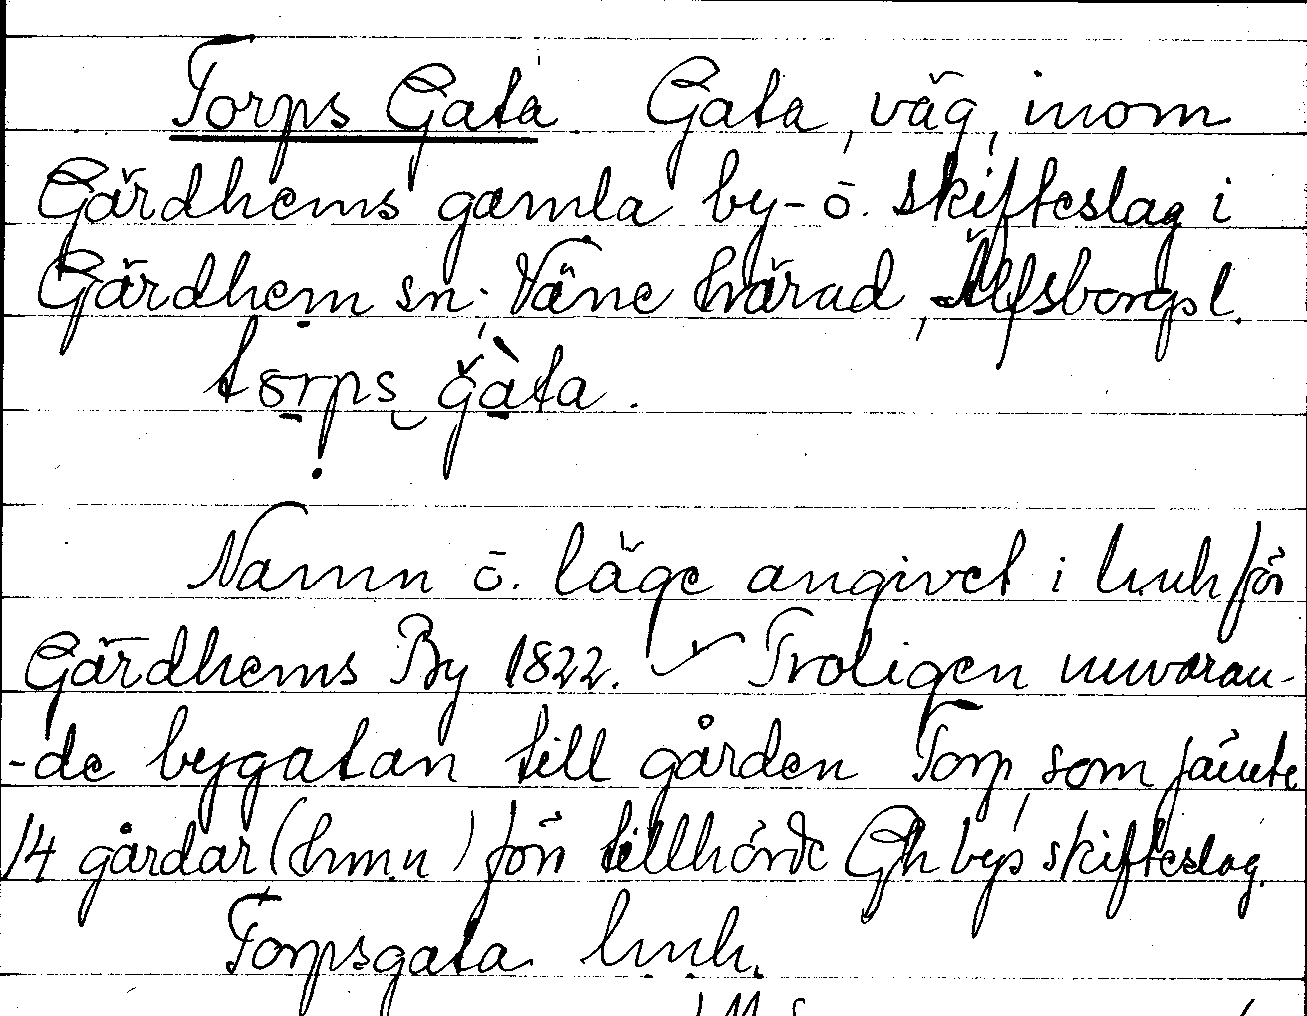 Torps Gata. Gata, väg, inom
Gärdhems gamla by- o. skifteslag i
Gärdhem sn. Väne härad, Älfsborgs l.
torps gata.
Namn o. läge angivet i lmh för
Gärdhems By 1822. Troligen nuvaran-
-de bygatan till gården Torp, som jämte
14 gårdar (hmn) för tillhörde Gh bys skifteslag.
Torpsgata lmh.